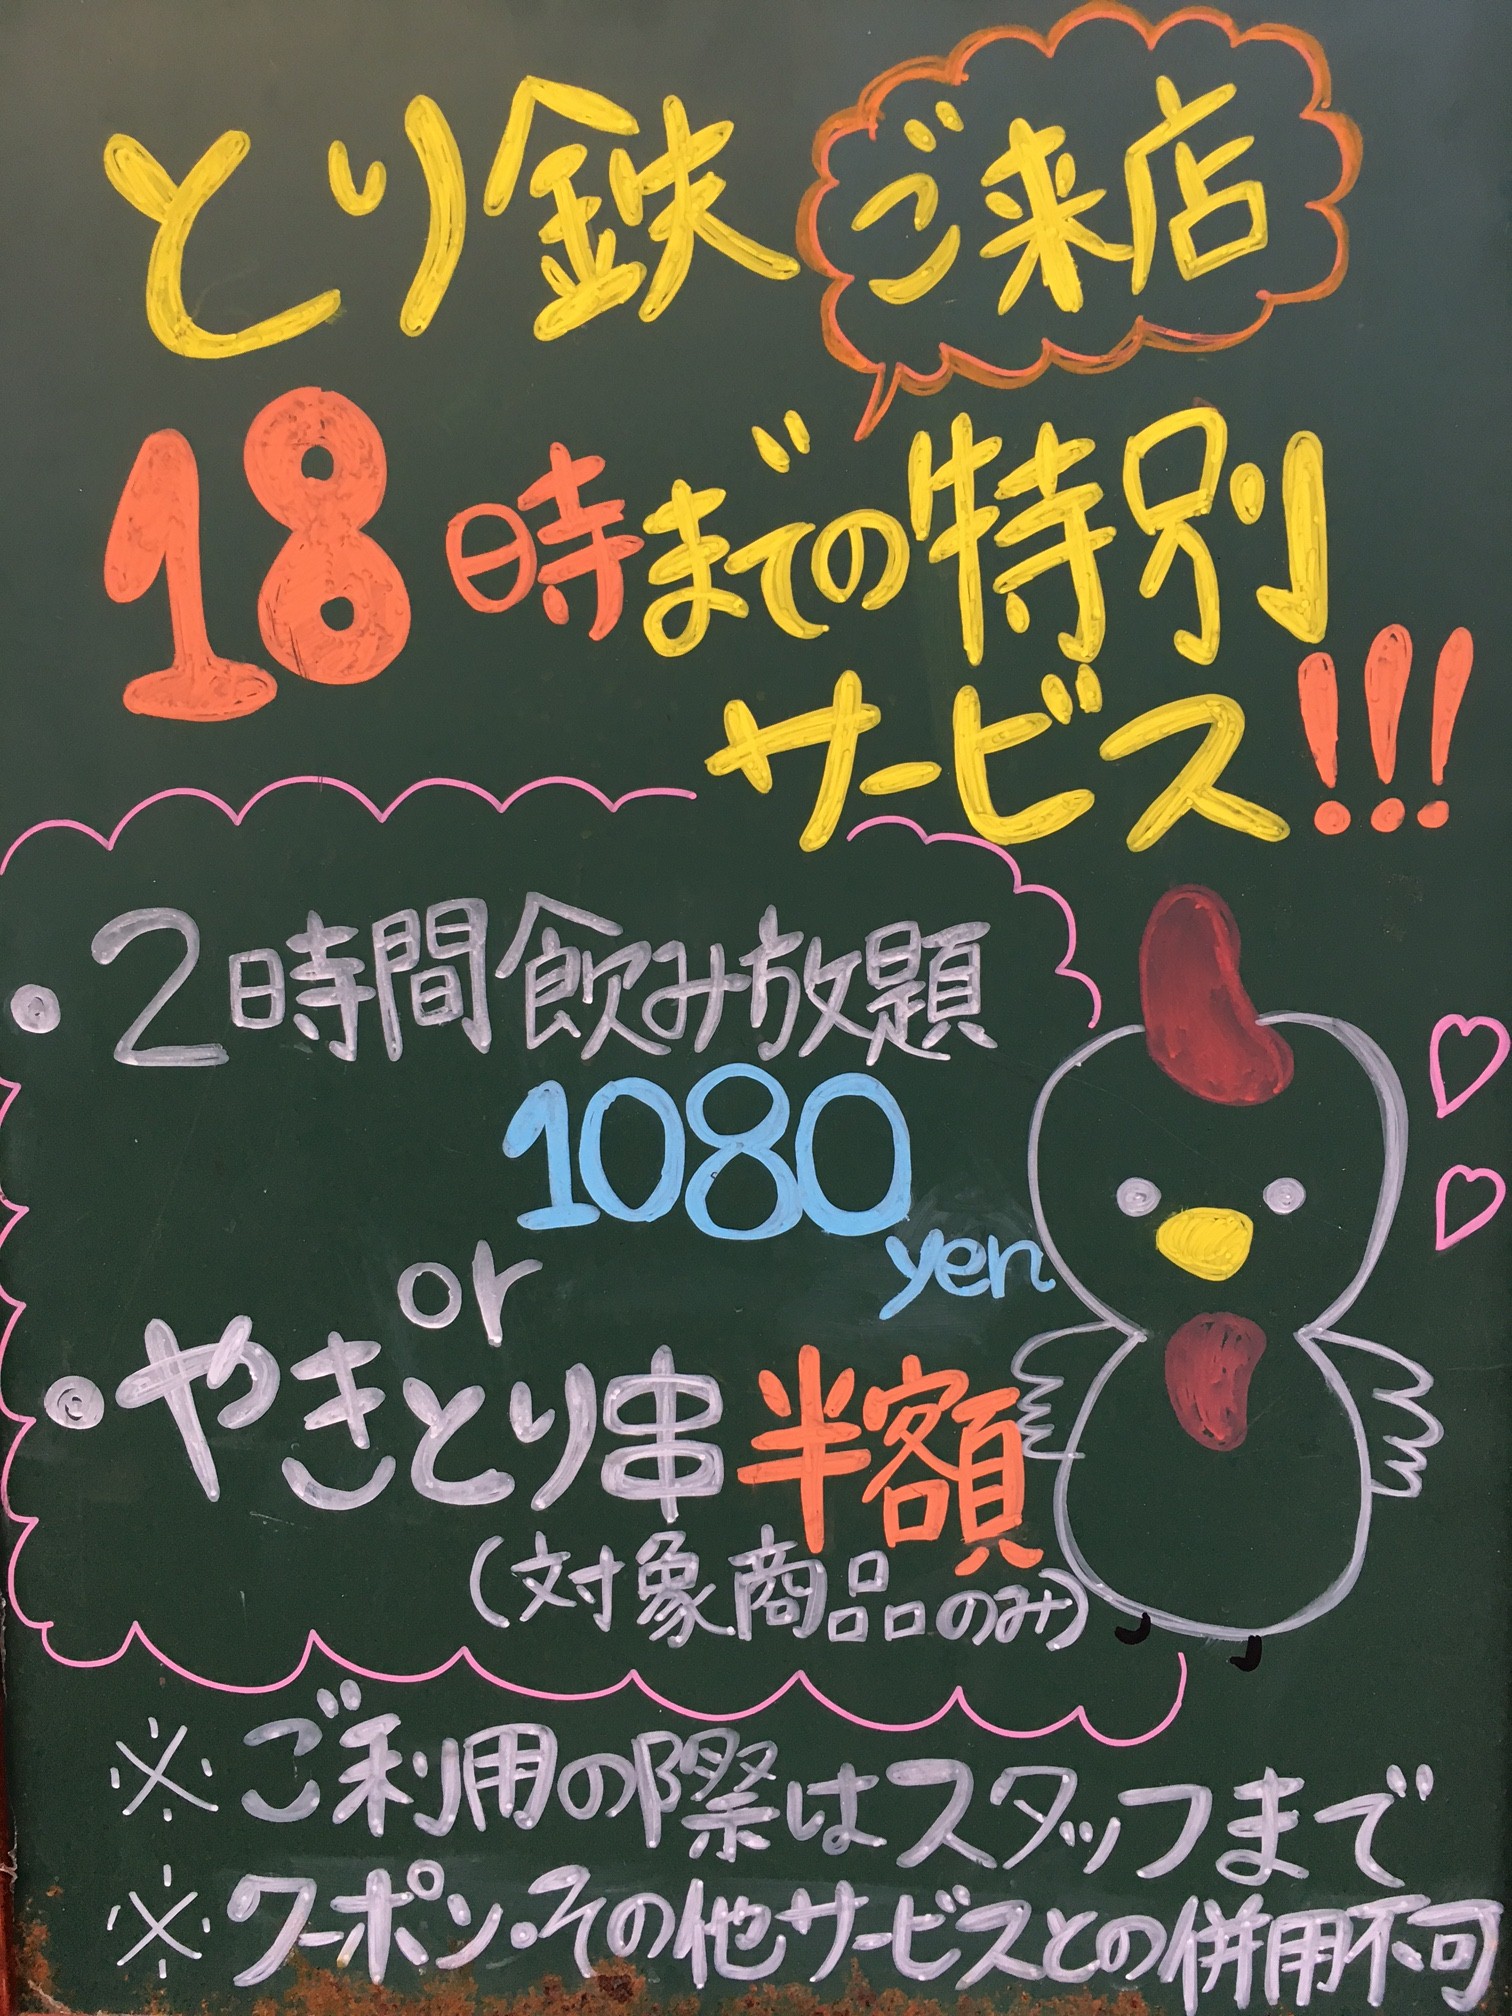 とり鉄 ご来店
18時までの特別
サービス!!!
● 2時間飲み放題
1080
yen
or
● やきとり串 半額
(対象商品のみ)
※ ご利用の際はスタッフまで
※ クーポン・その他サービスとの併用不可